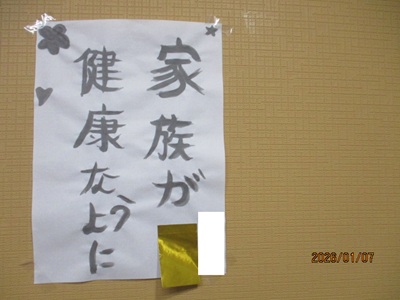 家族が
健康なように
2026/01/07